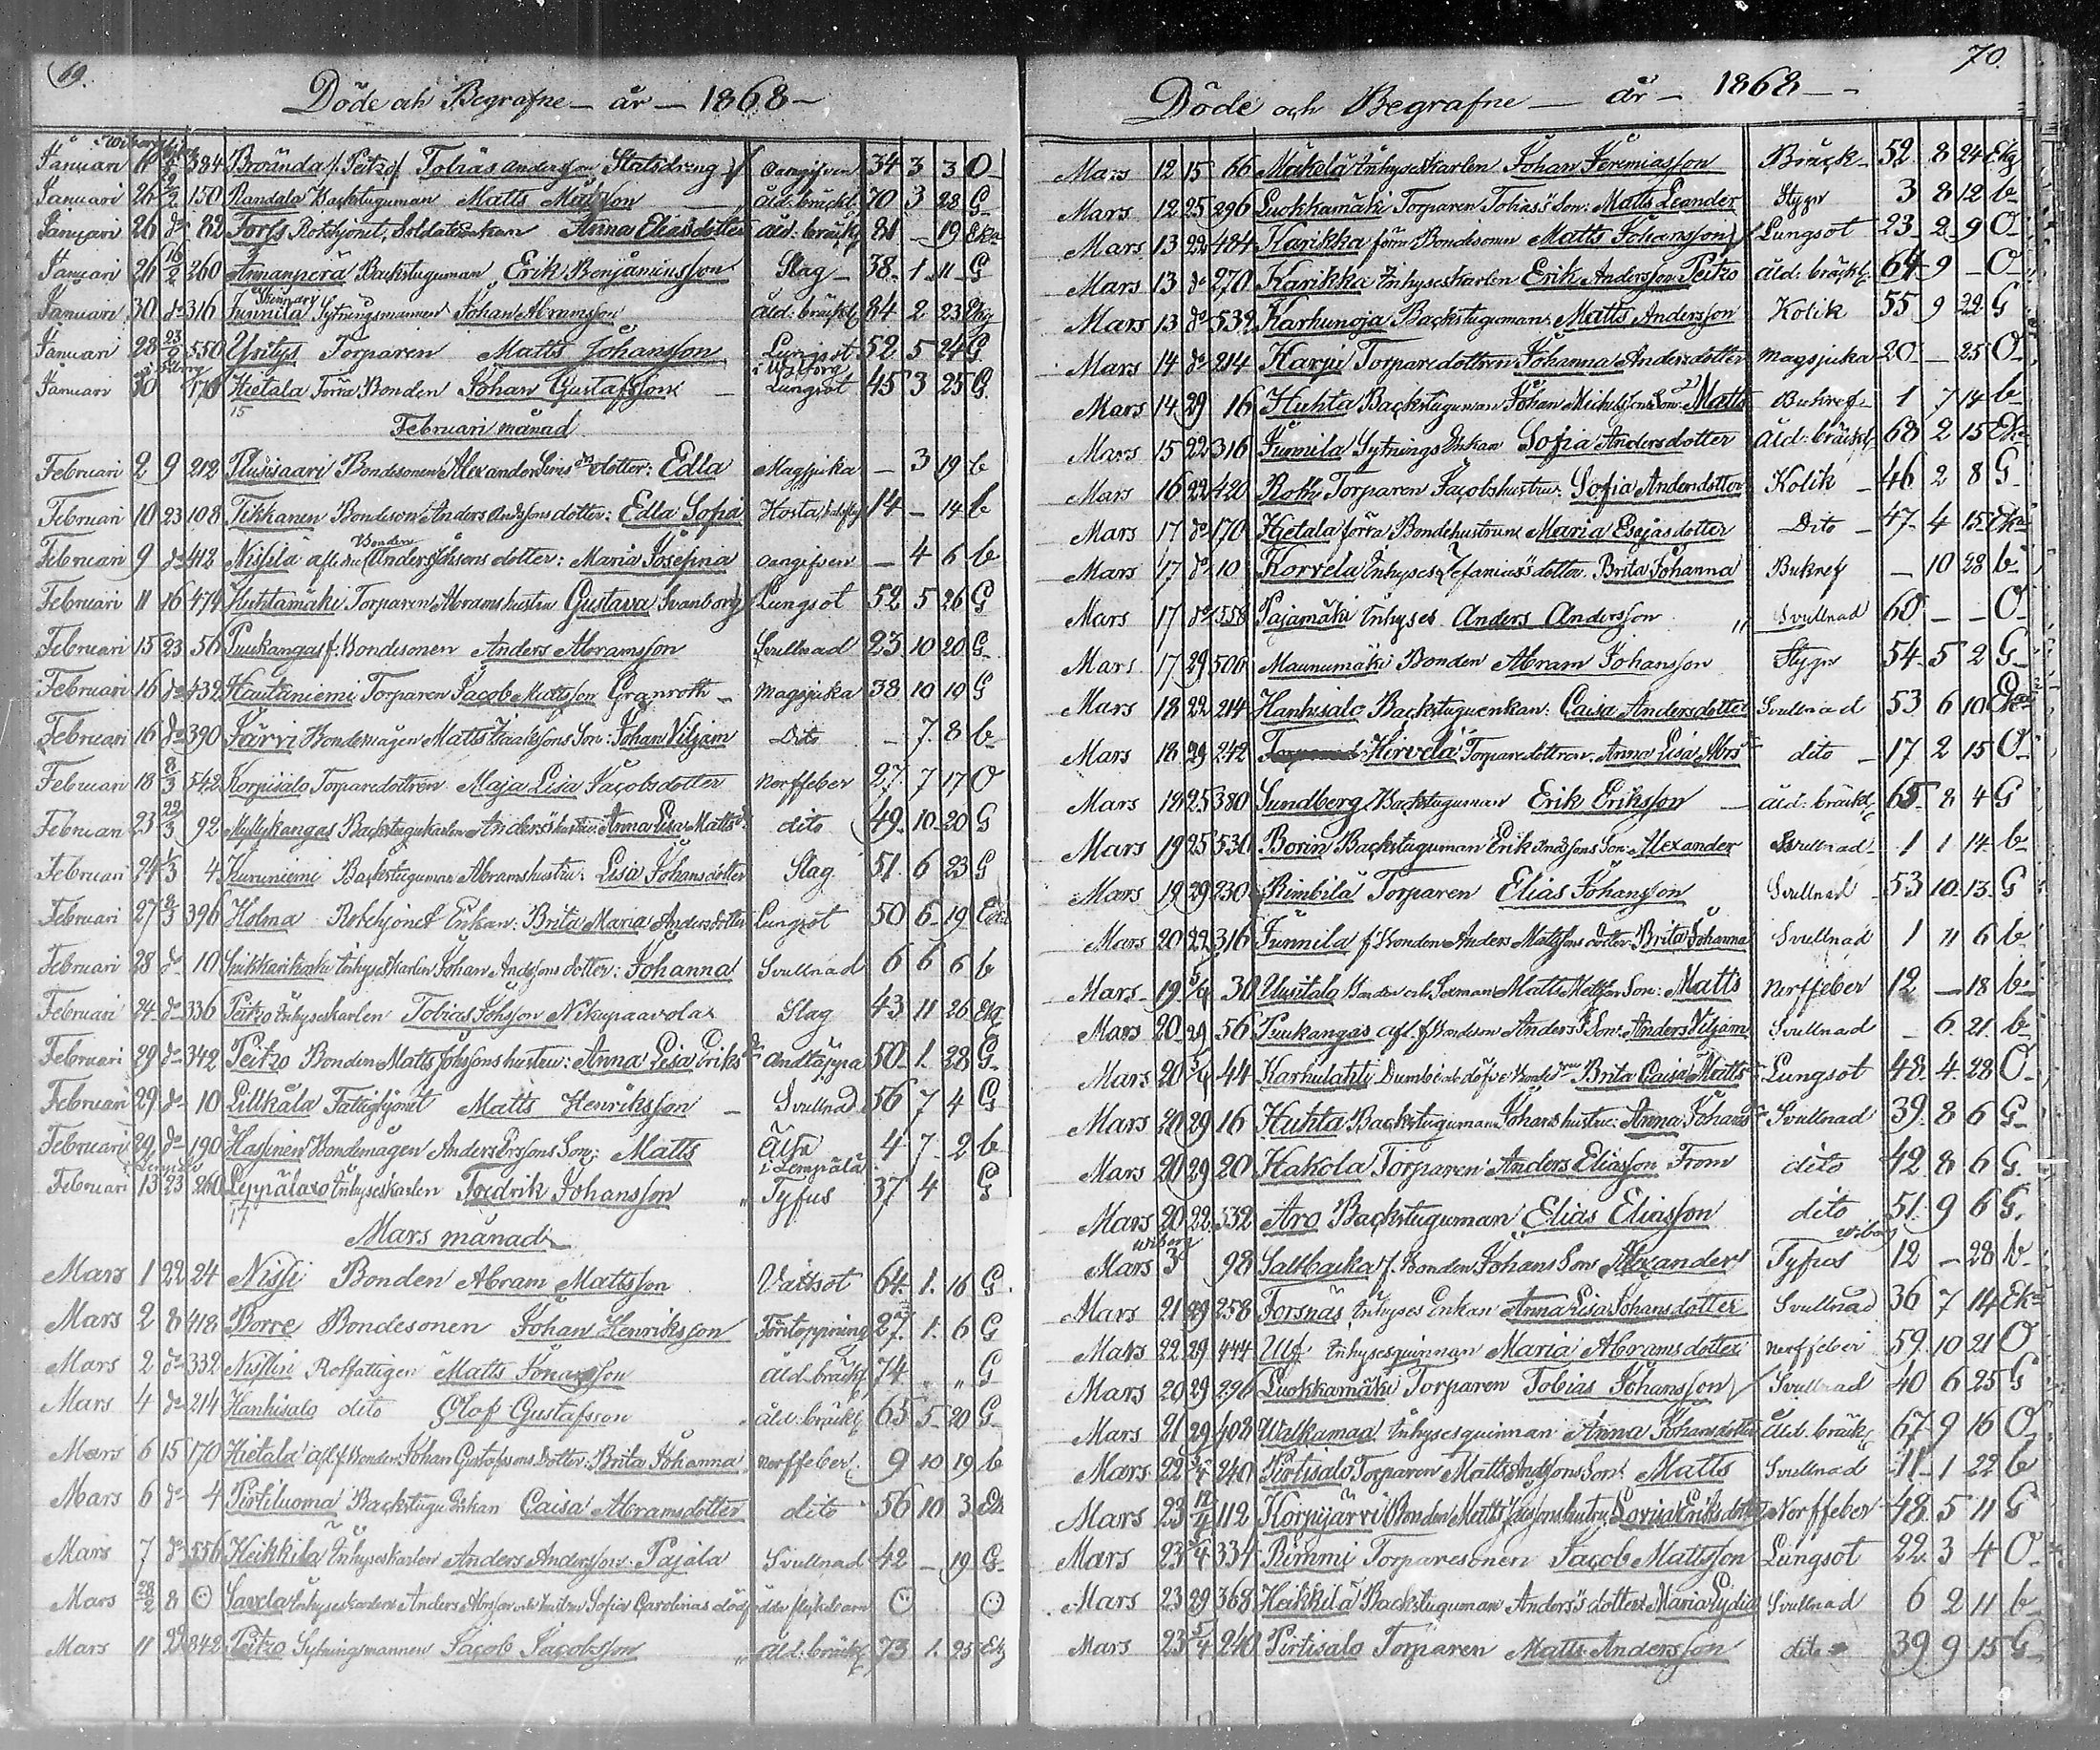 69.
Döde och Begrafne – år – 1868 –
Januari 384 Brounda /: Peitzo/ Tobias Andersson Statsdreng oangifven 34 3 3 O
Januari 150 Randala Backstuguman Matts åld: bräckl. 70 3 28 G
Januari 26 do 82 Forss Rotehjonet, Soldatenkan Anna Eliasdotter åld: bräckl. 81 – 19 Eka
Januari 26 16/2 260 Annanperä Backstuguman Erik Benjaminsson Slag 38 1 11 G
Januari 30 do 316 Junnila Sytningsmannen Johan Abramsson åld: bräckl. 84 2 23 Ekg
Januari 28 23/2 550 Yritys Torparen Matts Johansson Lungsot 52 5 24 G
Januari 30 170 Hietala Förra Bonden Johan Gustafsson Lungsot 45 3 25 G
15
Februari månad
Februari 2 9 212 Plusisaari Bondesonen Alexander dotter: Edla Magsjuka – 3 19 b
Februari 10 23 108 Tikkanen Bondeson Anders Anderssons dotter: Edla Sofia Hosta 14 – 14 b
Februari 9 do 412 Nissilä Bonden Anders Johssons dotter: Maria Josefina oangifven – 4 6 b
Februari 11 16 474 Huhtamäki Torparen Abrams hustru Gustava Svanborg Lungsot 52 5 26 G
Februari 15 23 56 Puukangas f. Bondesonen Anders Abramsson Svullnad 23 10 20 G
Februari 16 do 432 Hautaniemi Torparen Jacob Mattsson Granroth Magsjuka 38 10 19 G
Februari 16 do 390 Järvi Bondemågen Matts Isakssons Son: Johan Viljam Dito – 7 8 b
Februari 18 8/3 542 Korpisalo Torparedottren Maja Lisa Jacobsdotter Nerffeber 27 7 17 O
Februari 23 22/3 92 Myllykangas Backstugukarlen Anders hustru: Anna Lisa Mattsdr dito 49 10 20 G
Februari 24 1/3 4 Kuruniemi Backstuguman Abrams hustru: Lisa Johansdotter Slag 51 6 23 G
Februari 27 8/3 396 Holma Rotehjonet Enkan: Brita Maria Andersdotter Lungsot 50 6 19 Eka
Februari 28 do 10 Inhyseskarlen Johan Anderssons dotter: Johanna Svullnad 6 6 6 b
Februari 24 do 336 Peitzo Inhyseskarlen Tobias Johsson Nikupaavola Slag 43 11 26 Ekg
Februari 29 do 342 Peitzo Bonden Matts Johssons hustru: Anna Lisa Eriksdr Andtäppa 50 1 28 G
Februari 29 do 10 Lillkåla Fattighjonet Matts Henriksson Svullnad 56 7 4 G
Februari 29 do 190 Hassinen Bondemågen Anders Erssons Son: Matts 4 7 2 b
i Lempälä
Februari 13 23 260 Leppälaxo Inhyseskarlen Fredrik Johansson Tyfus 37 4 G
17
Mars månad
Mars 1 22 24 Nissi Bonden Abram Mattsson Vattsot 64 1 16 G
Mars 2 8 418 Borre Bondesonen Johan Henriksson Förstoppning 27 1 6 G
Mars 2 do 332 Rotfattigen Matts Jonasson åld. bräckl. 74 „ „ G
Mars 4 do 214 Hanhisalo dito Olof Gustafsson åld. bräckl. 65 5 20 G
Mars 6 15 170 Hietala afl. f. Bonden Johan Gustafssons Dotter: Brita Johanna Nerffeber 9 10 19 b
Mars 6 do 4 Pirtiluoma Backstugu Enkan Caisa Abramsdotter dito 56 10 3 Ek
Mars 7 do 556 Heikkilä Inhyseskarlen Anders Andersson Pajala Svullnad 42 – 19 G
Mars 28/2 8 Savela Inhyseskarlen Anders Abrsson och hustru Sofia Carolinas dödfödda flickebarn
Mars 11 22 342 Peitzo Sytningsmannen Jacob Jacobsson åld. bräckl. 73 1 25 Ek
70.
Döde och Begrafne – år – 1868 –
Mars 12 15 66 Mäkelä Inhyseskarlen Johan Jeremiasson Bräck 52 8 24 Ekg
Mars 12 25 296 Luokkamäki Torparen Tobias's Son: Matts Leander Stygn 3 8 12 b
Mars 13 22 484 Harikka förra Bondesonen Matts Johansson Lungsot 23 2 9 O
Mars 13 do 270 Karikka Inhyseskarlen Erik Andersson Peitzo åld. bräckl. 64 9 – O
Mars 13 do 532 Karhunoja Backstuguman Matts Andersson Kolik 55 9 22 G
Mars 14 do 214 Harju Torparedottren Johanna Andersdotter Magsjuka 20 – 25 O
Mars 14 29 16 Huhta Backstuguman Johan Michelssons Son: Matts Bukref 1 7 14 b
Mars 15 22 316 Junnila Sytnings Enkan Sofia Andersdotter åld. bräckl. 68 2 15 Eka
Mars 16 22 420 Roth Torparen Jacobs hustru: Sofia Andersdotter Kolik 46 2 8 G
Mars 17 do 170 Hietala förra Bondehustrun Maria Esajasdotter Dito 47 4 15 Eka
Mars 17 do 10 Korvela Inhyses Zefanias's dotter Brita Johanna Bukref – 10 28 b
Mars 17 do 558 Pajamäki Inhyses Anders Andersson Svullnad 60 – – O
Mars 17 29 500 Maunumäki Bonden Abram Johansson Stygn 54 5 2 G
Mars 18 22 214 Hanhisalo Backstuguenkan: Caisa Andersdotter Svullnad 53 6 10 Eka
Mars 18 29 242 Hirvelä Torparedottren Anna Lisa Abrsdr dito 17 2 15 O
Mars 19 25 380 Sundberg Backstuguman Erik Eriksson åld. bräckl. 65 8 4 G
Mars 19 25 530 Borin Backstuguman Erik Anderssons Son: Alexander Svullnad 1 1 14 b
Mars 19 29 230 Rimbilä Torparen Elias Johansson Svullnad 53 10 13 G
Mars 20 22 316 Junnila f. Bonden Anders Mattssons dotter Brita Johanna Svullnad 1 11 6 b
Mars 19 5/4 30 Uusitalo Bonden och Sexman Matts Mattsson Son: Matts Nerffeber 12 – 18 b
Mars 20 29 56 Puukangas afl. f. Bondeson Anders's Son: Anders Viljam Svullnad – 6 21 b
Mars 20 5/4 44 Karhulahti Dumbe och döfve Brita Caisa Mattsdr Lungsot 48 4 28 O
Mars 20 29 16 Huhta Backstuguman Johans hustru: Anna Johansdr Svullnad 39 8 6 G
Mars 20 29 20 Hakola Torparen Anders Eliasson From dito 42 8 6 G
Mars 20 22 532 Aro Backstuguman Elias Eliasson dito 51 9 6 G
Wiborg
Mars 3 98 Saltbacka f. Bonden Johans Son Alexander Tyfus 12 – 28 b
Mars 21 29 258 Forsnäs Inhyses Enkan Anna Lisa Johansdotter Svullnad 36 7 14 Eka
Mars 22 29 444 Ulf Inhyseqvinnan Maria Abramsdotter Nerffeber 59 10 21 O
Mars 20 29 296 Luokkamäki Torparen Tobias Johansson Svullnad 40 6 25 G
Mars 21 29 408 Walkamaa Inhysesqvinnan Anna Johansdotter åld. bräckl. 67 9 16 O
Mars 22 5/4 240 Pirtisalo Torparen Matts Anderssons Son: Matts Svullnad 11 1 22 b
Mars 23 12/4 112 Korpijärvi Bonden Matts hustru Lovisa Eriksdotter Nerffeber 48 5 11 G
Mars 23 334 Rimmi Torparesonen Jacob Mattsson Lungsot 22 3 4 O
Mars 23 29 368 Heikkilä Backstuguman Anders's dotter Maria Lydia Svullnad 6 2 11 b
Mars 23 5/4 240 Pirtisalo Torparen Matts Andersson dito 39 9 15 G